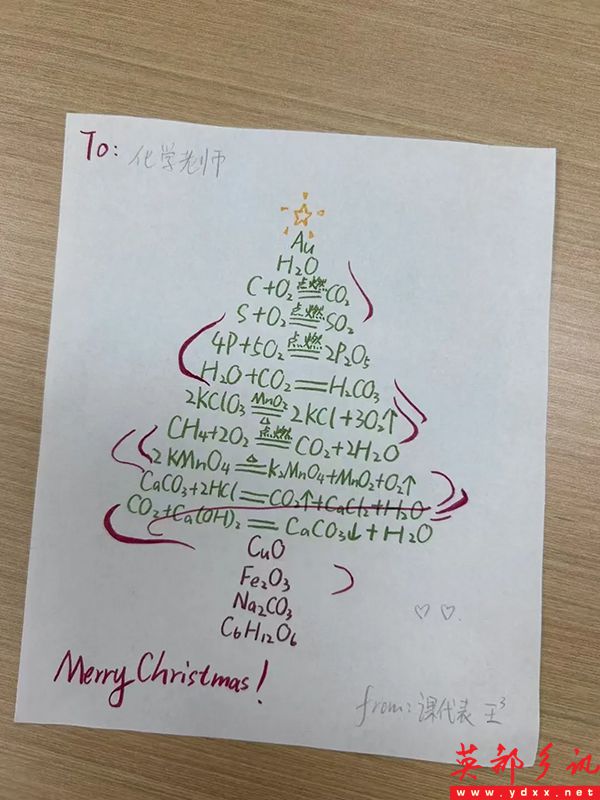 To: 化学老师
Au
H₂O
C+O₂ 点燃 CO₂
S+O₂ 点燃 SO₂
4P+5O₂ 点燃 2P₂O₅
H₂O+CO₂ = H₂CO₃
2KClO₃ MnO₂ △ 2KCl+3O₂↑
CH₄+2O₂ 点燃 CO₂+2H₂O
2KMnO₄ △ K₂MnO₄+MnO₂+O₂↑
CaCO₃+2HCl = CO₂↑+CaCl₂+H₂O
CO₂+Ca(OH)₂ = CaCO₃↓+H₂O
CuO
Fe₂O₃
Na₂CO₃
C₆H₁₂O₆
Merry Christmas!
from: 课代表 王³
英都乡讯
www.ydxx.net